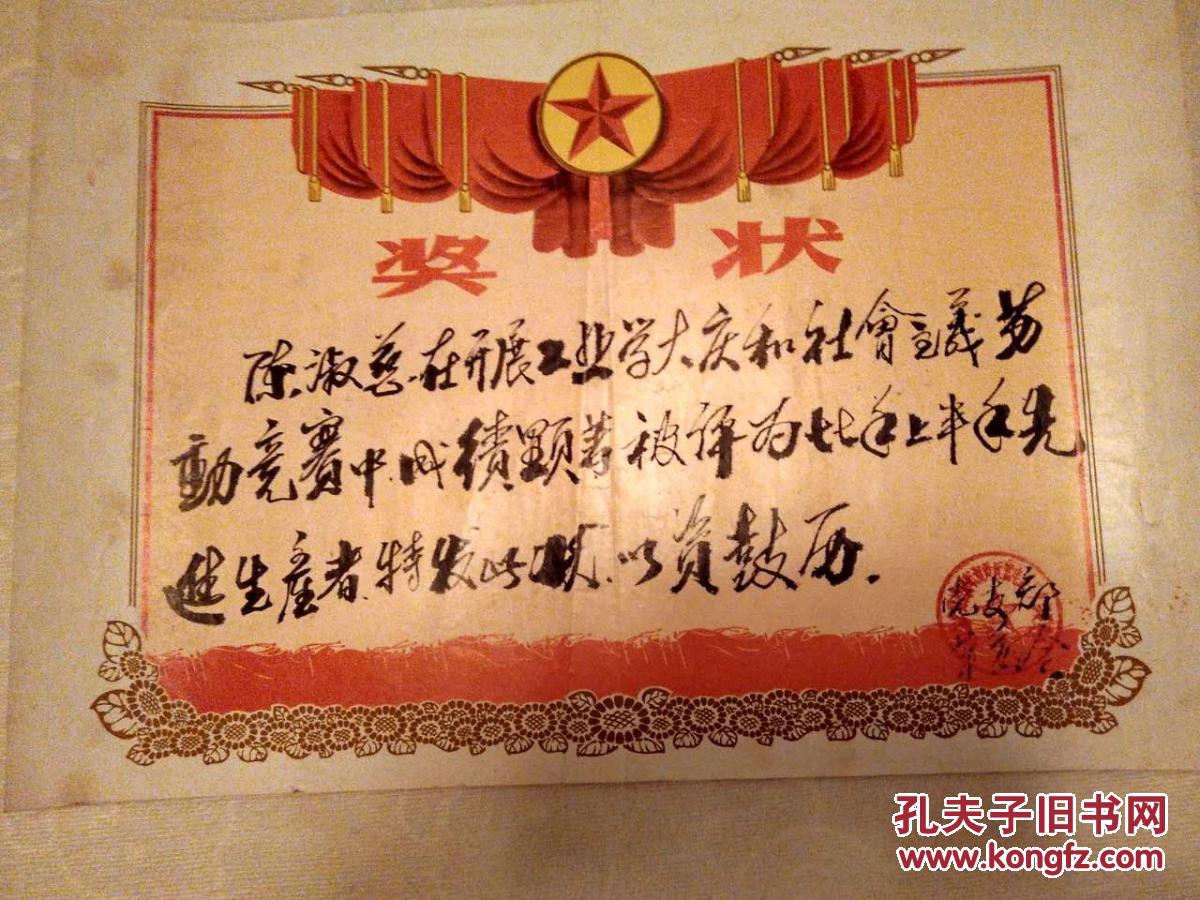 奖状
陈淑慈在开展工业学大庆和社會主義劳
動竞賽中.成績顕著被评为七七年上半年先
进生產者.特发此状.以资鼓历.
党支部
孔夫子旧书网
www.kongfz.com